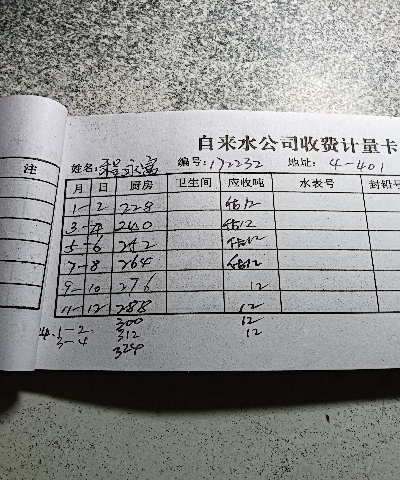 自来水公司收费计量卡
注
姓名:程永富 编号:172232 地址:4-401
月 日 厨房 卫生间 应收吨 水表号 封铅号
1-2 228 估12
3-4 240 估12
5-6 252 估12
7-8 264 估12
9-10 276 12
11-12 288 12
1-2. 300 12
3-4 312 12
324